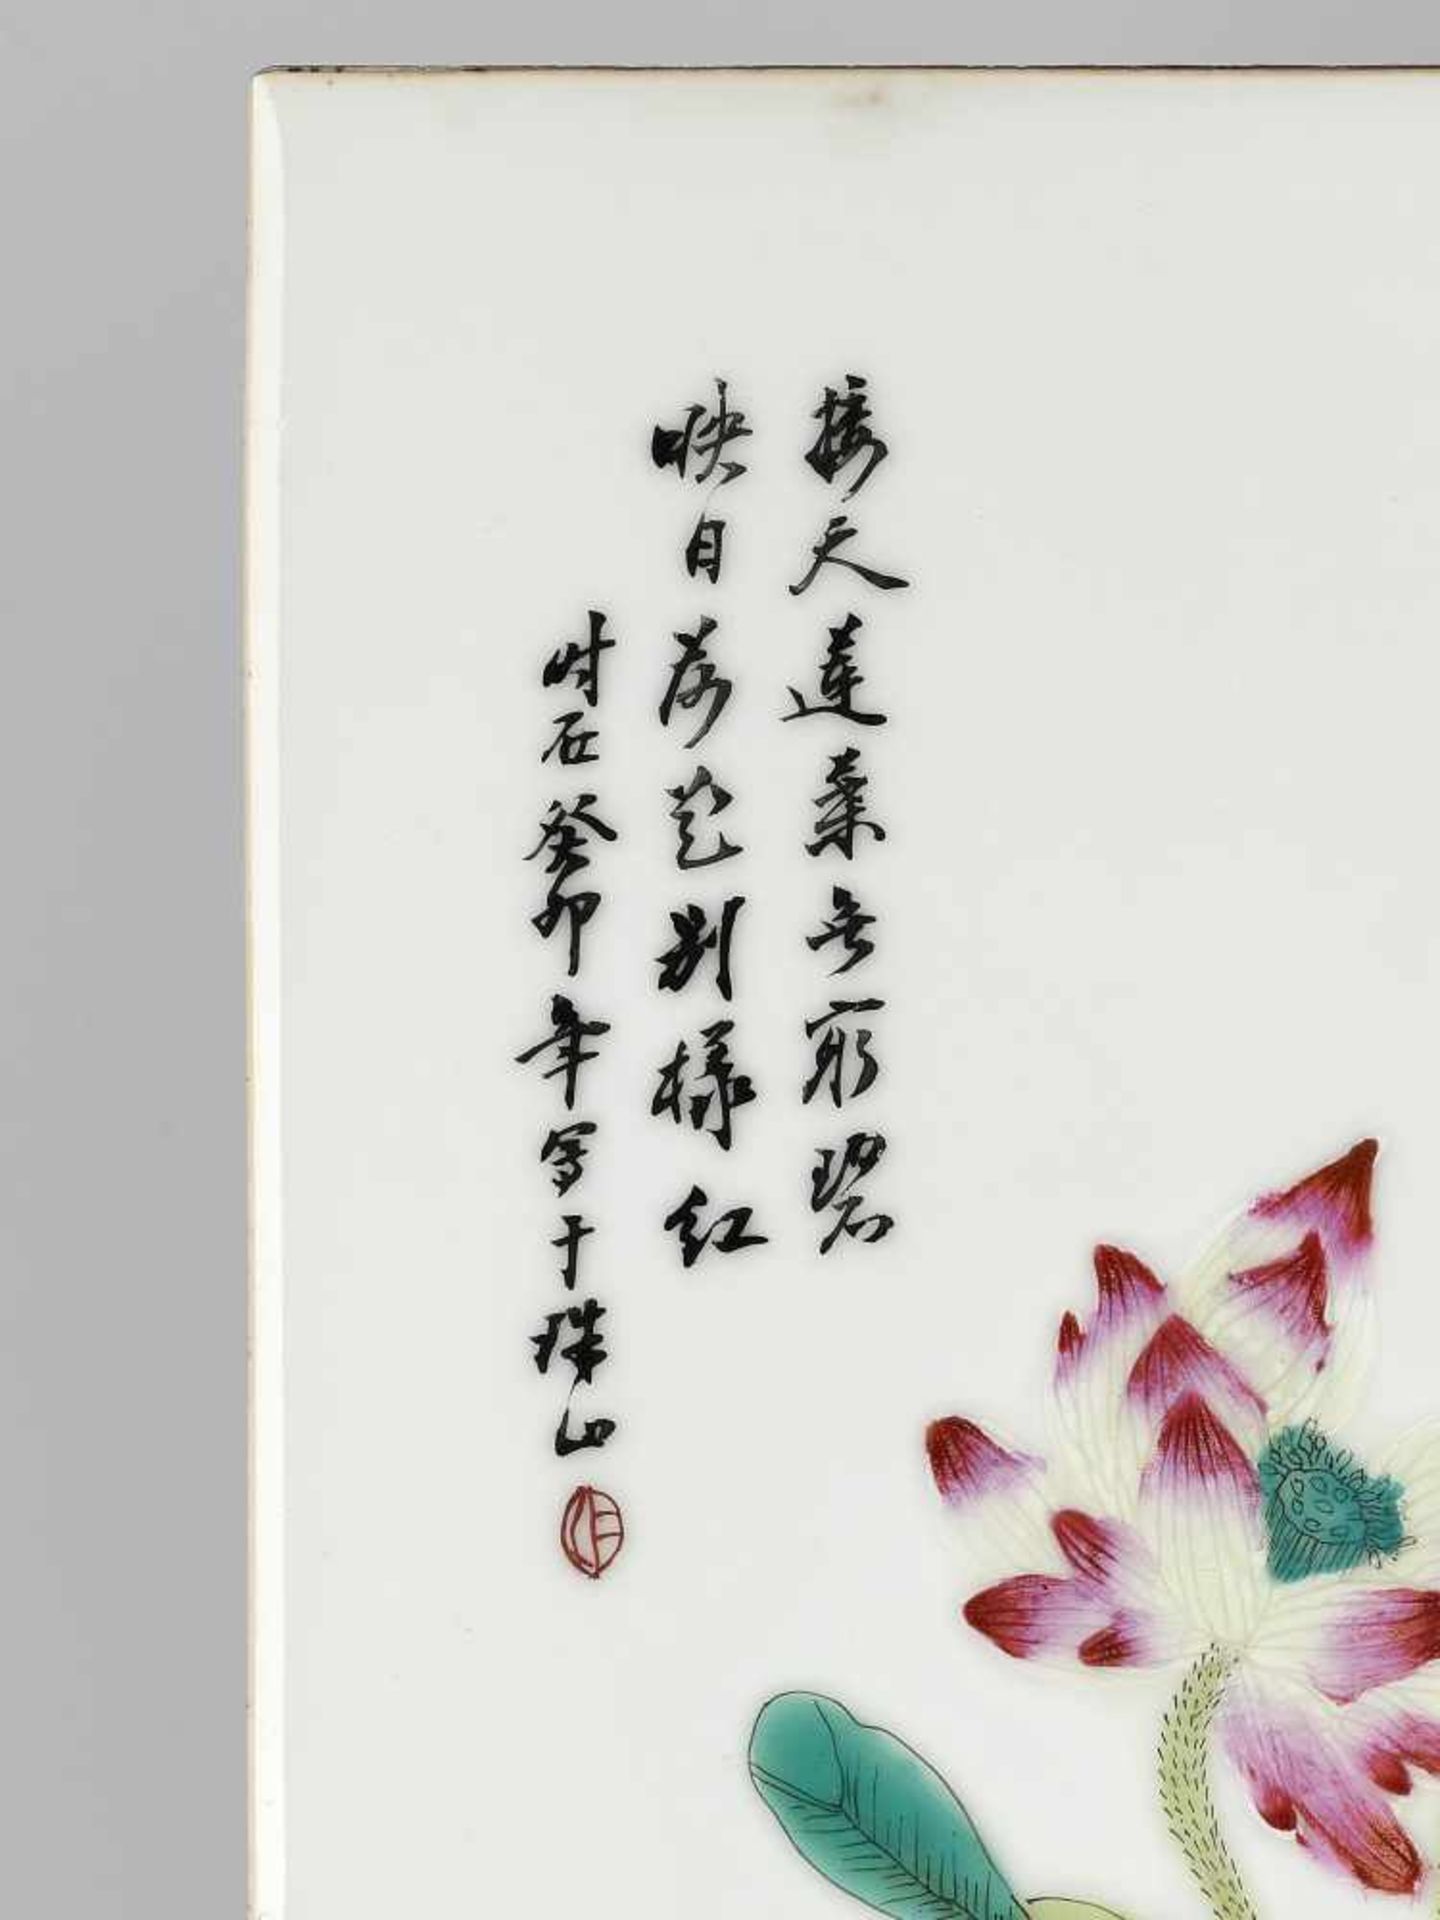 接天蓮葉无窮碧
映日荷花别樣红
时在癸卯年写于珠山